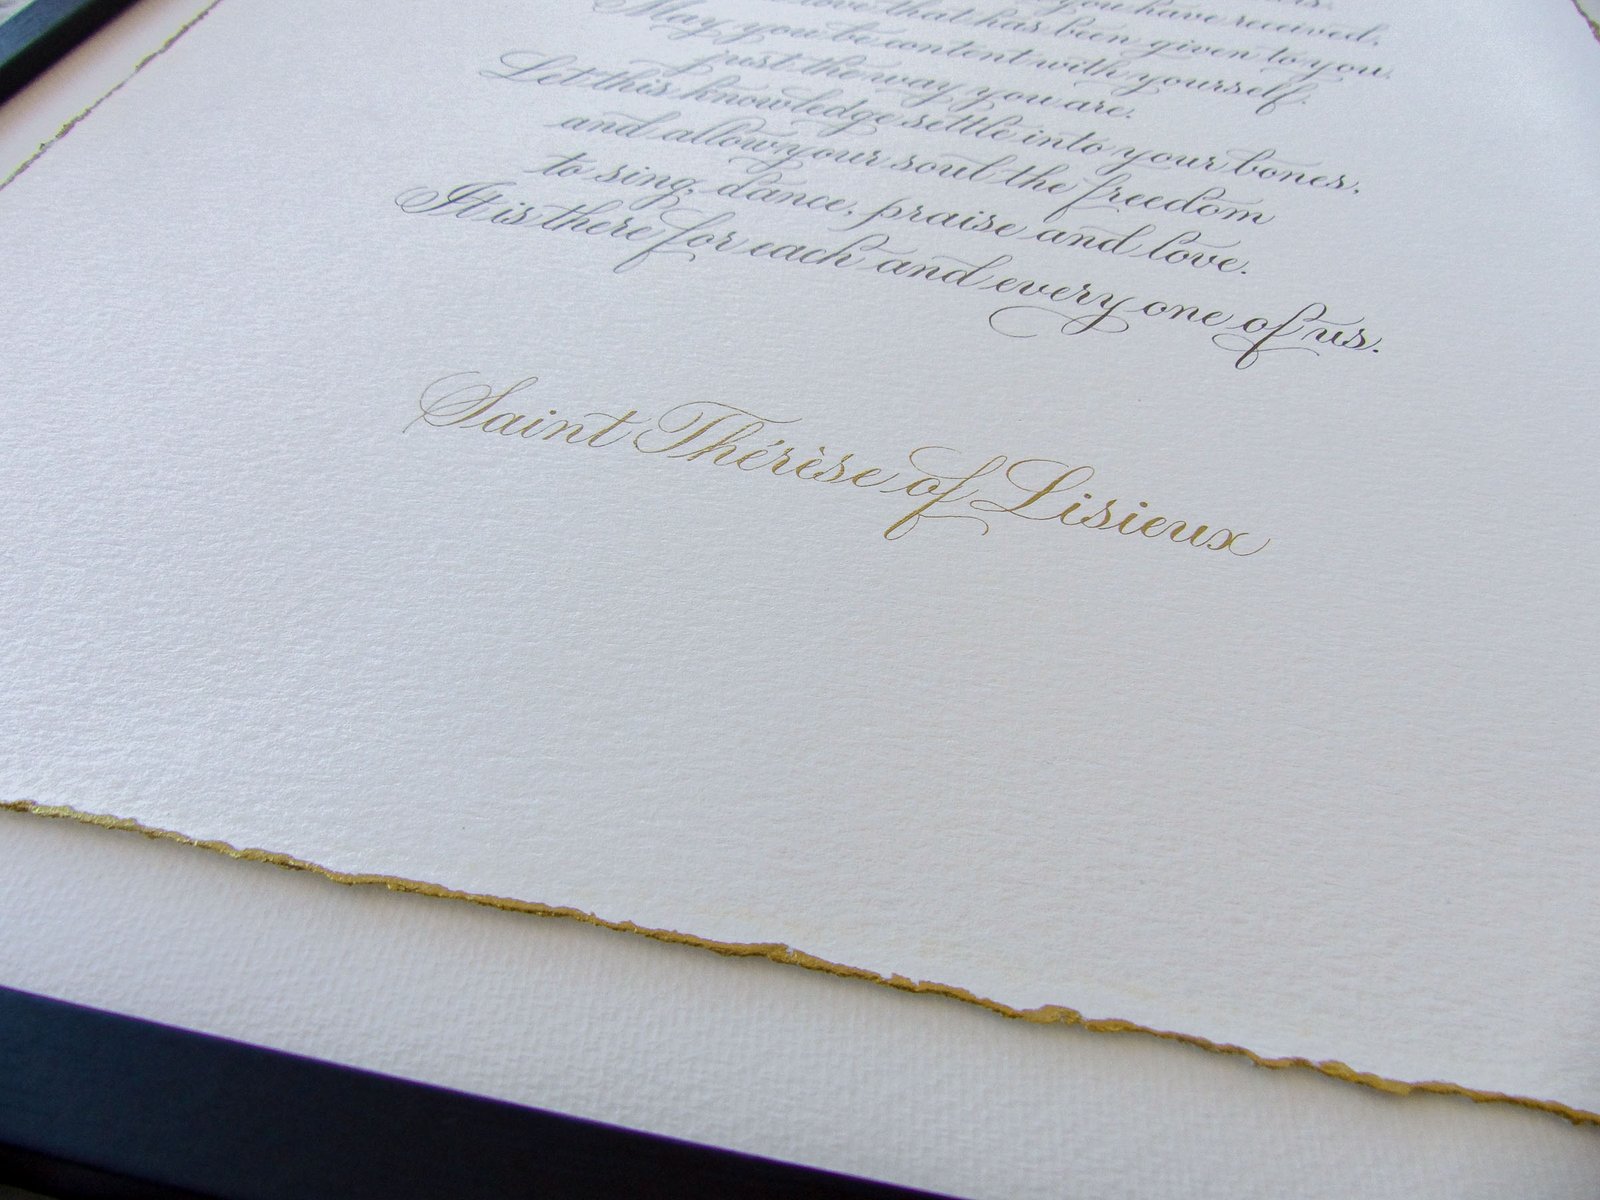 you have received,
love that has been given to you.
May you be content with yourself
just the way you are.
Let this knowledge settle into your bones,
and allow your soul the freedom
to sing, dance, praise and love.
It is there for each and every one of us.
Saint Thérèse of Lisieux